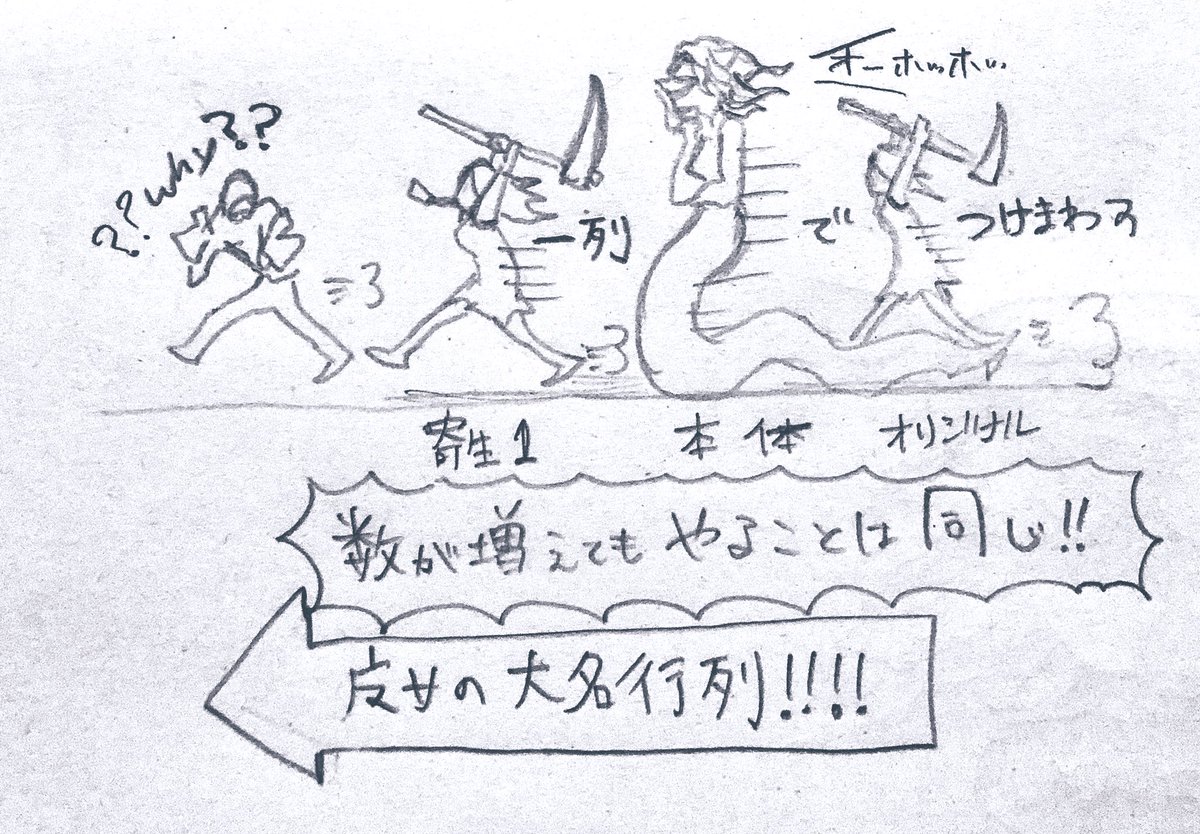 ??why??
オーホッホッ…
一列 で つけまわす
寄生1 本体 オリジナル
数が増えてもやることは同じ!!
の大名行列!!!!